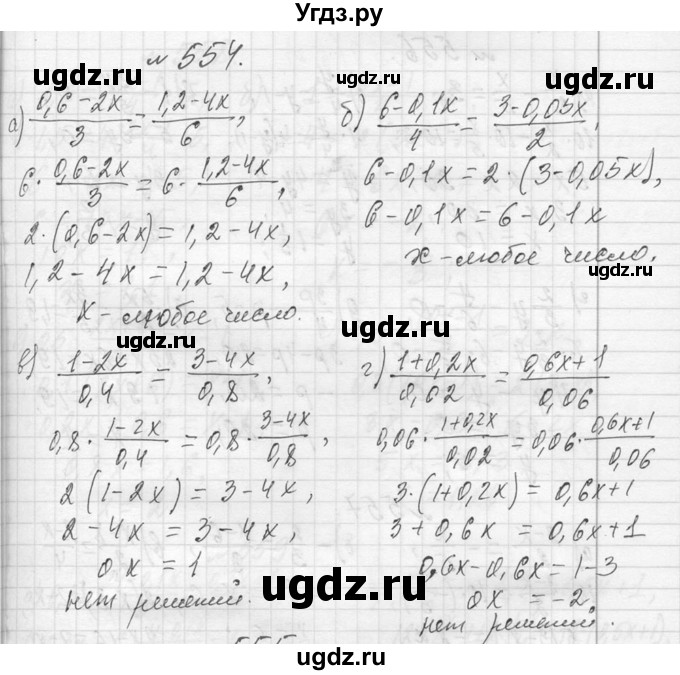 Угдз.ру
№ 554.
а) (0,6-2x)/3 = (1,2-4x)/6,
6·(0,6-2x)/3 = 6·(1,2-4x)/6,
2·(0,6-2x) = 1,2-4x,
1,2-4x = 1,2-4x,
x - любое число.
б) (6-0,1x)/4 = (3-0,05x)/2,
6-0,1x = 2·(3-0,05x),
6-0,1x = 6-0,1x
x - любое число.
в) (1-2x)/0,4 = (3-4x)/0,8,
0,8·(1-2x)/0,4 = 0,8·(3-4x)/0,8,
2(1-2x) = 3-4x,
2-4x = 3-4x,
0x = 1
нет решений.
г) (1+0,2x)/0,02 = (0,6x+1)/0,06
0,06·(1+0,2x)/0,02 = 0,06·(0,6x+1)/0,06
3·(1+0,2x) = 0,6x+1
3+0,6x = 0,6x+1
0,6x-0,6x = 1-3
0x = -2
нет решений.
ugdz.ru
ugdz.ru
ugdz.ru
ugdz.ru
ugdz.ru
ugdz.ru
ugdz.ru
ugdz.ru
ugdz.ru
ugdz.ru
ugdz.ru
ugdz.ru